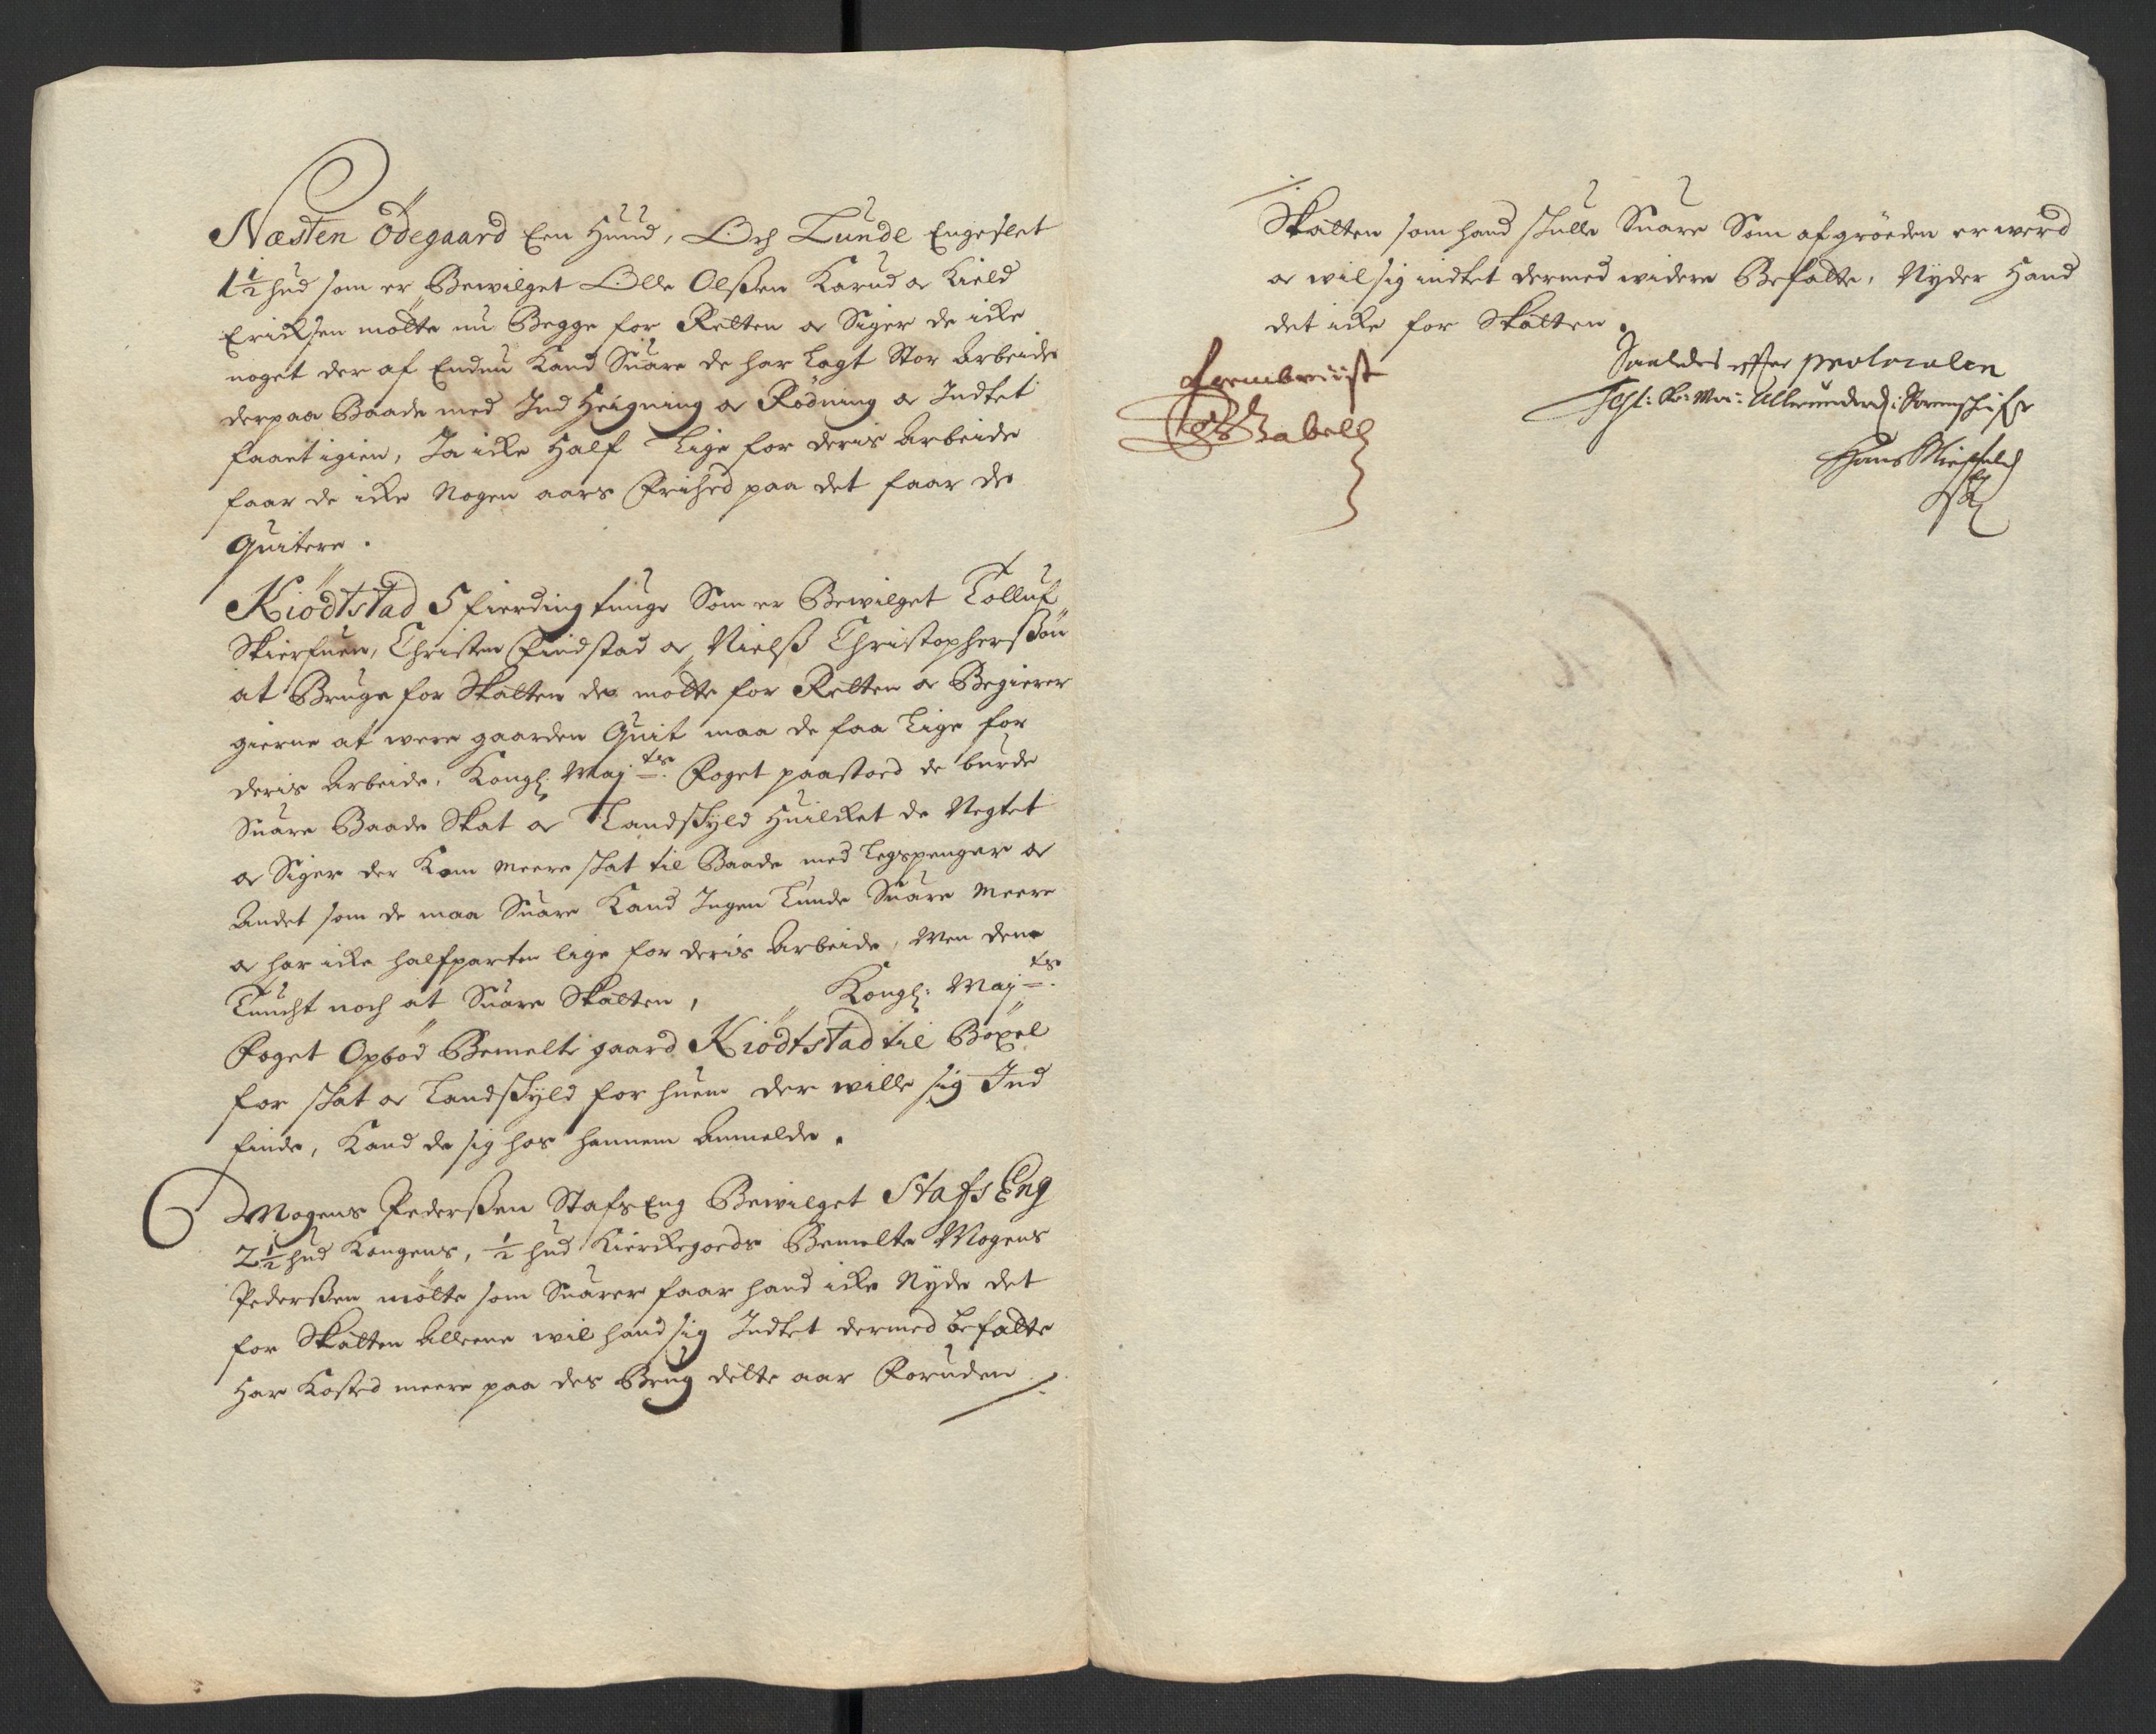 Næsten Ödegaard Een Huud, Och Lunde Engeslet
1½ hud som er Bewilget Olle Olßen Karud oc Kield
Ericksen mötte nu Begge for Retten oc Siger de icke
noget der af Endnu Kand Suare de har Lagt Stor Arbeide
derpaa Baade med Ind Heigning oc Rödning oc Indtet
faaet igien, Ja icke Half Lige for deris Arbeide
faar de icke Nogen aars Frihed paa det faar de
Quitere.
Kiödtstad 5 fierding tunge Som er Bewilget Tolluf
Skierfuen, Christen Findstad oc Nielß Christopherßön
at Bruge for Skatten de mötte for Retten oc Begierer
gierne at were gaarden Quit maa de faa Lige for
deris Arbeide, Kongl: Maj:ts Foget paastoed de burde
Suare Baade Skat oc Landskyld Huilcket de Negtet
oc Siger der Kom meere skat til Baade med Legspenger oc
Andet som de maa Suare Kand Ingen Lunde Suare meere
oc har icke halfparten lige for deris Arbeide, Men dem
Tuncht noch at Suare Skatten, Kongl: Maj:ts
Foget Opböd Bemelte gaard Kiödtstad til Böxel
for skat oc Landskyld for huem der wille sig Ind
finde, Kand de sig hos hannem Anmelde.
Mogens Pederßen StafsEng Bewilget StafsEng
2½ hud Kongens, ½ hud Kierckegoeds Bemelte Mogens
Pederßen mötte som Suarer faar hand icke Nyde det
for Skatten Alleene wil hand sig Indtet dermed befatte
Har Kosted meere paa des Brug dette aar Foruden ./.
./.
Skatten som hand skulle Suare Som afgröeden er werd
oc wil sig indtet dermed widere Befatte, Nyder Hand
det icke for Skatten.
Saaledes effter protocolen
Test: Ko: Ma: Allerunderd: Sorenschrifr
Frembeviist
Hans